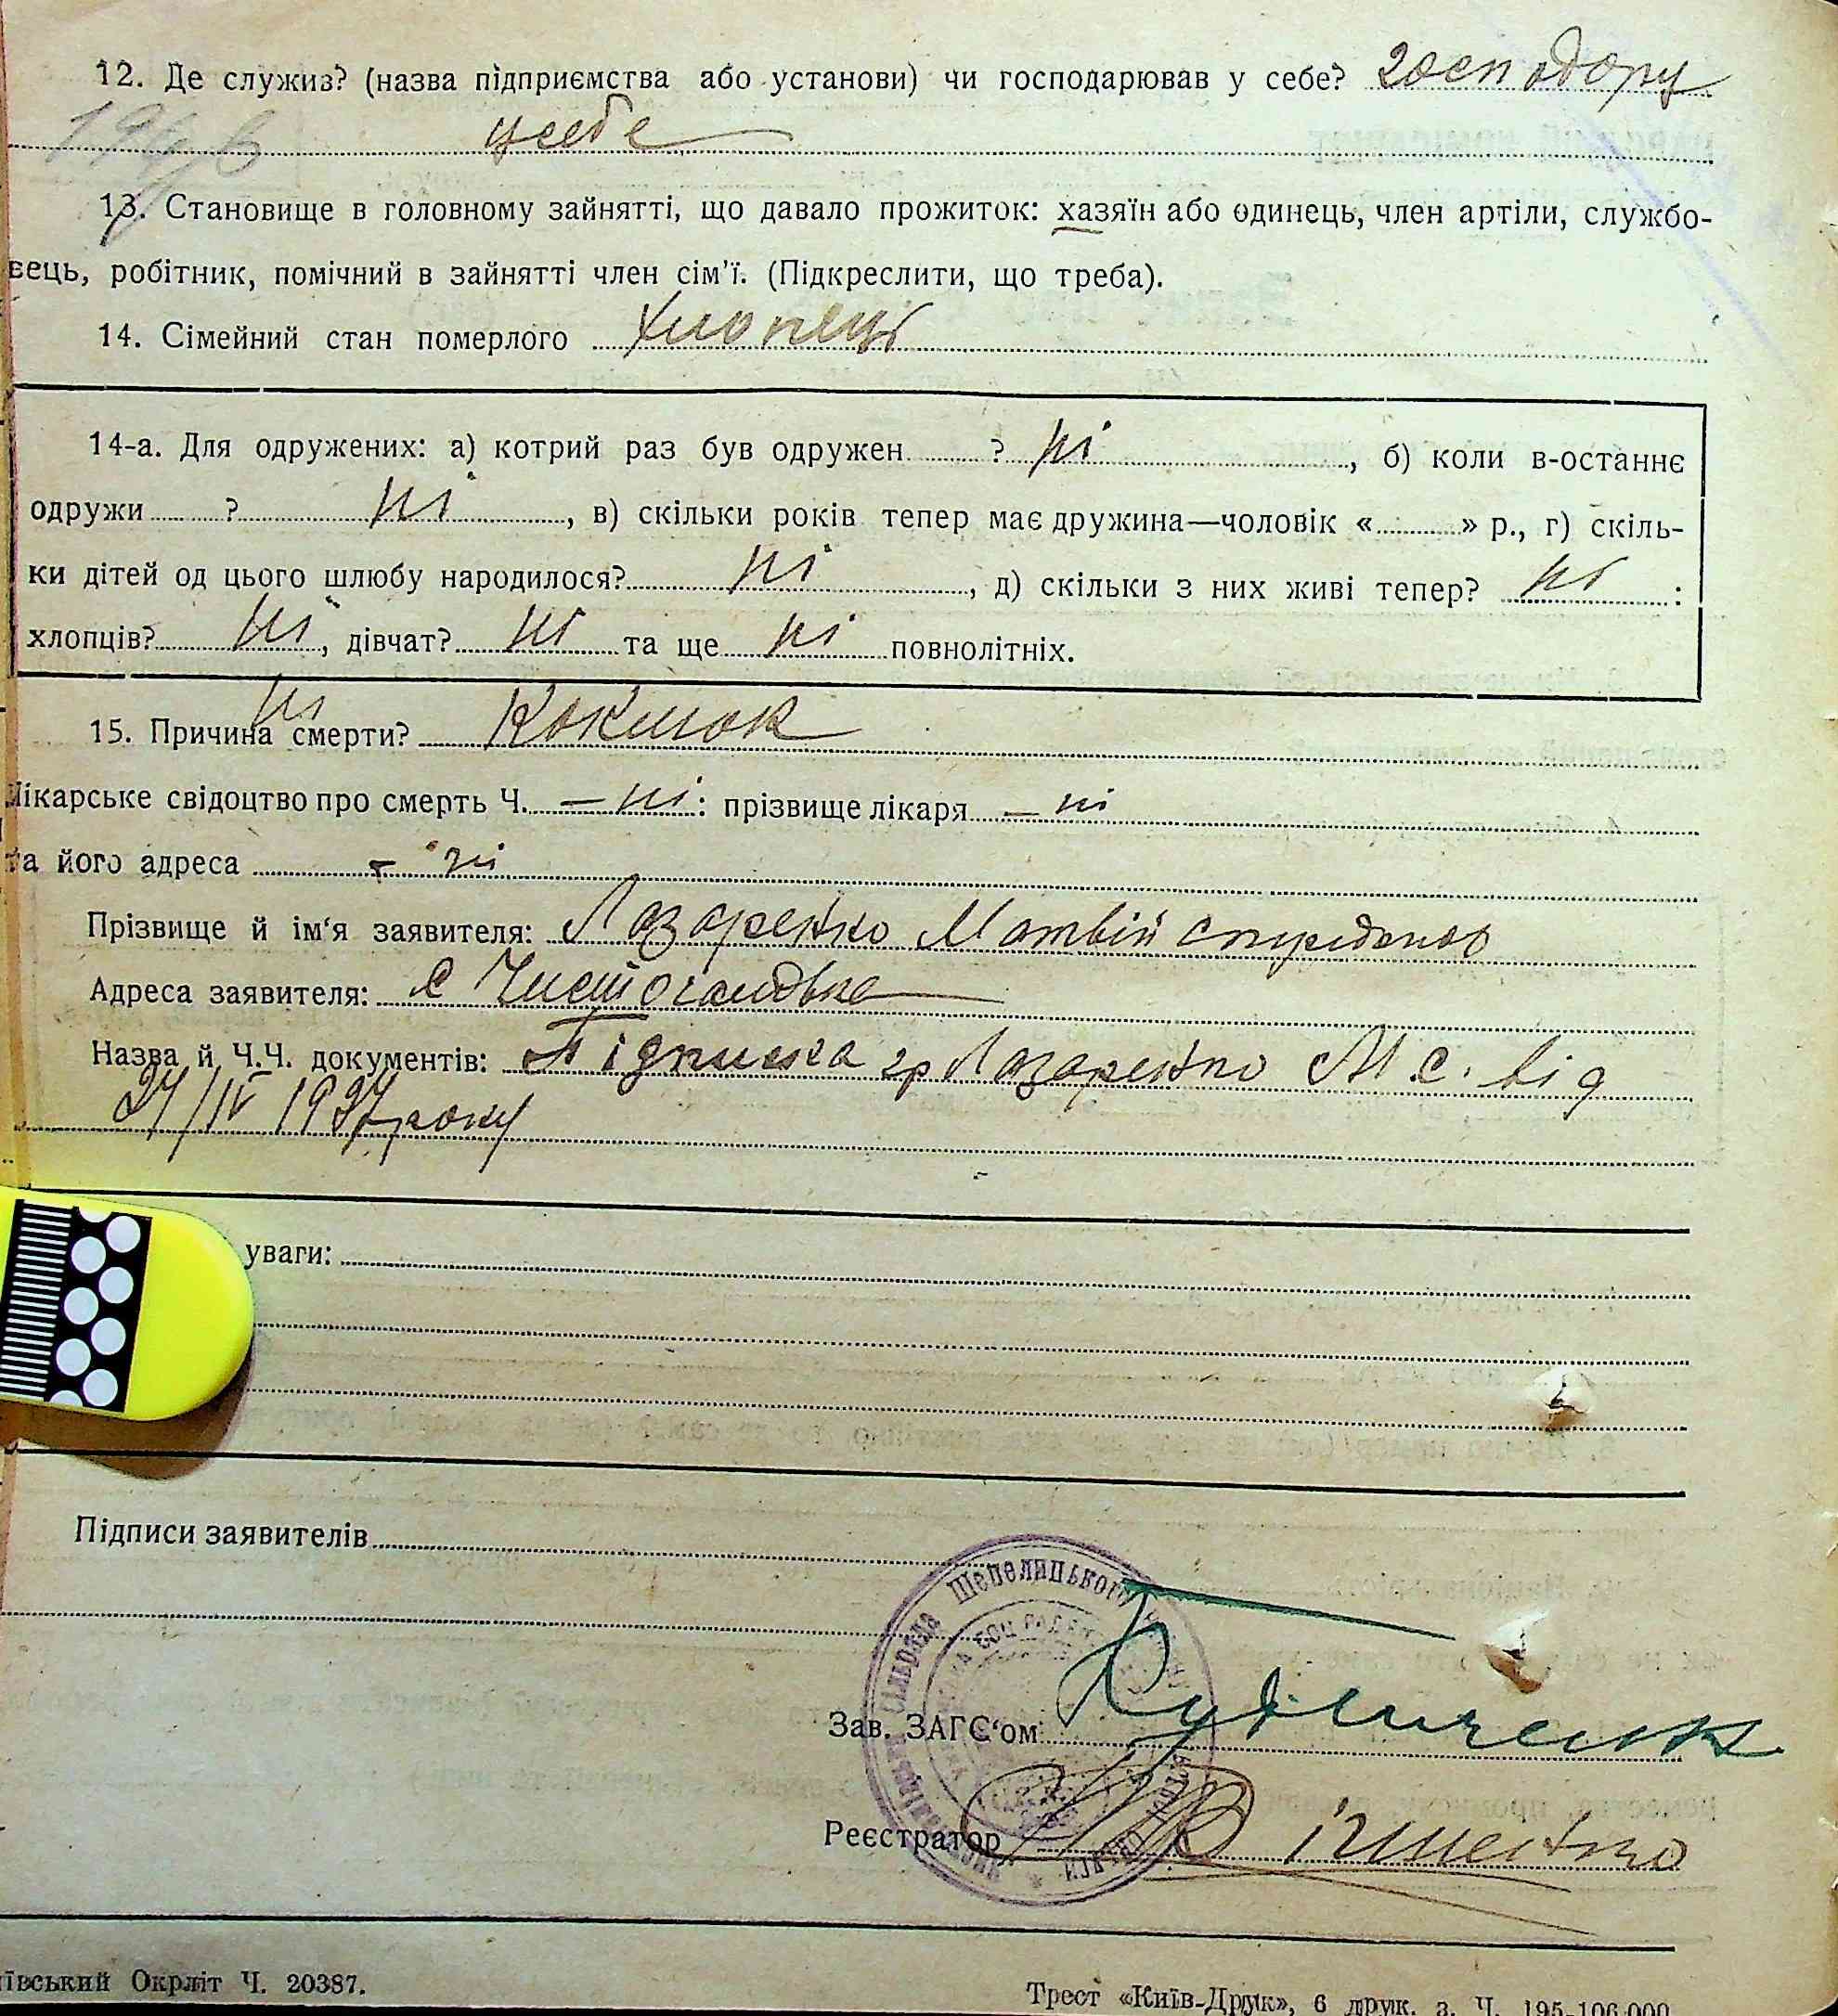 12. Де служив? (назва підприємства або установи) чи господарював у себе? господару
1946 усебе
13. Становище в головному зайнятті, що давало прожиток: хазяїн або одинець, член артіли, службо-
вець, робітник, помічний в зайнятті член сім'ї. (Підкреслити, що треба).
14. Сімейний стан померлого хлопець
14-а. Для одружених: а) котрий раз був одружен ? ні, б) коли в-останнє
одружи ? ні, в) скільки років тепер має дружина—чоловік « » р., г) скіль-
ки дітей од цього шлюбу народилося? ні, д) скільки з них живі тепер? ні :
хлопців? ні, дівчат? ні та ще ні повнолітніх.
ні
15. Причина смерти? Коклюк
Лікарське свідоцтво про смерть Ч. — ні : прізвище лікаря — ні
та його адреса - ні
Прізвище й ім'я заявителя: Лазаренко Матвій
Адреса заявителя: с Чистогаловка
Назва й Ч.Ч. документів: Підписка гр Лазаренко М. С. від
27/IV 1927 року
уваги:
Підписи заявителів
Шепелицького
сільрада
Зав. ЗАГС'ом
Реєстратор
ївський Окрліт Ч. 20387.
Трест «Київ-Друк», 6 друк. з. Ч. 195-106.000